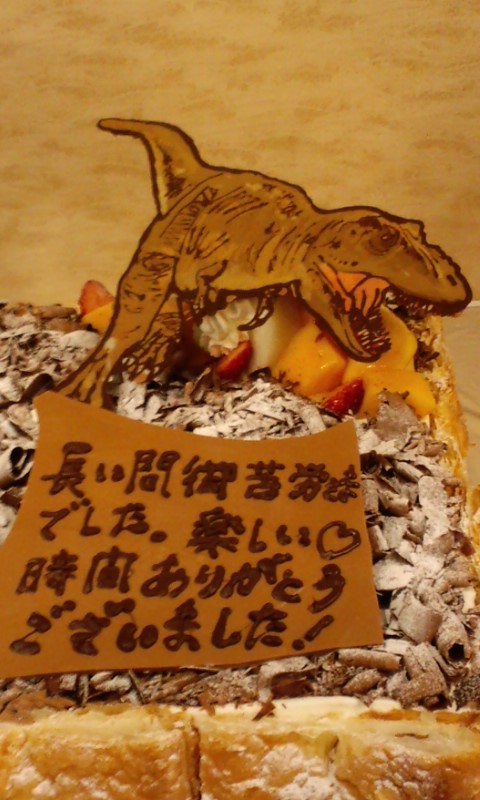 長い間御苦労様
でした。楽しい♡
時間ありがとう
ございました!